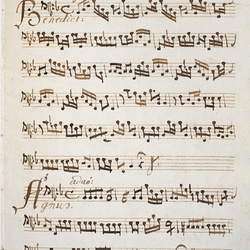 Benedict:
adagio
Agnus.